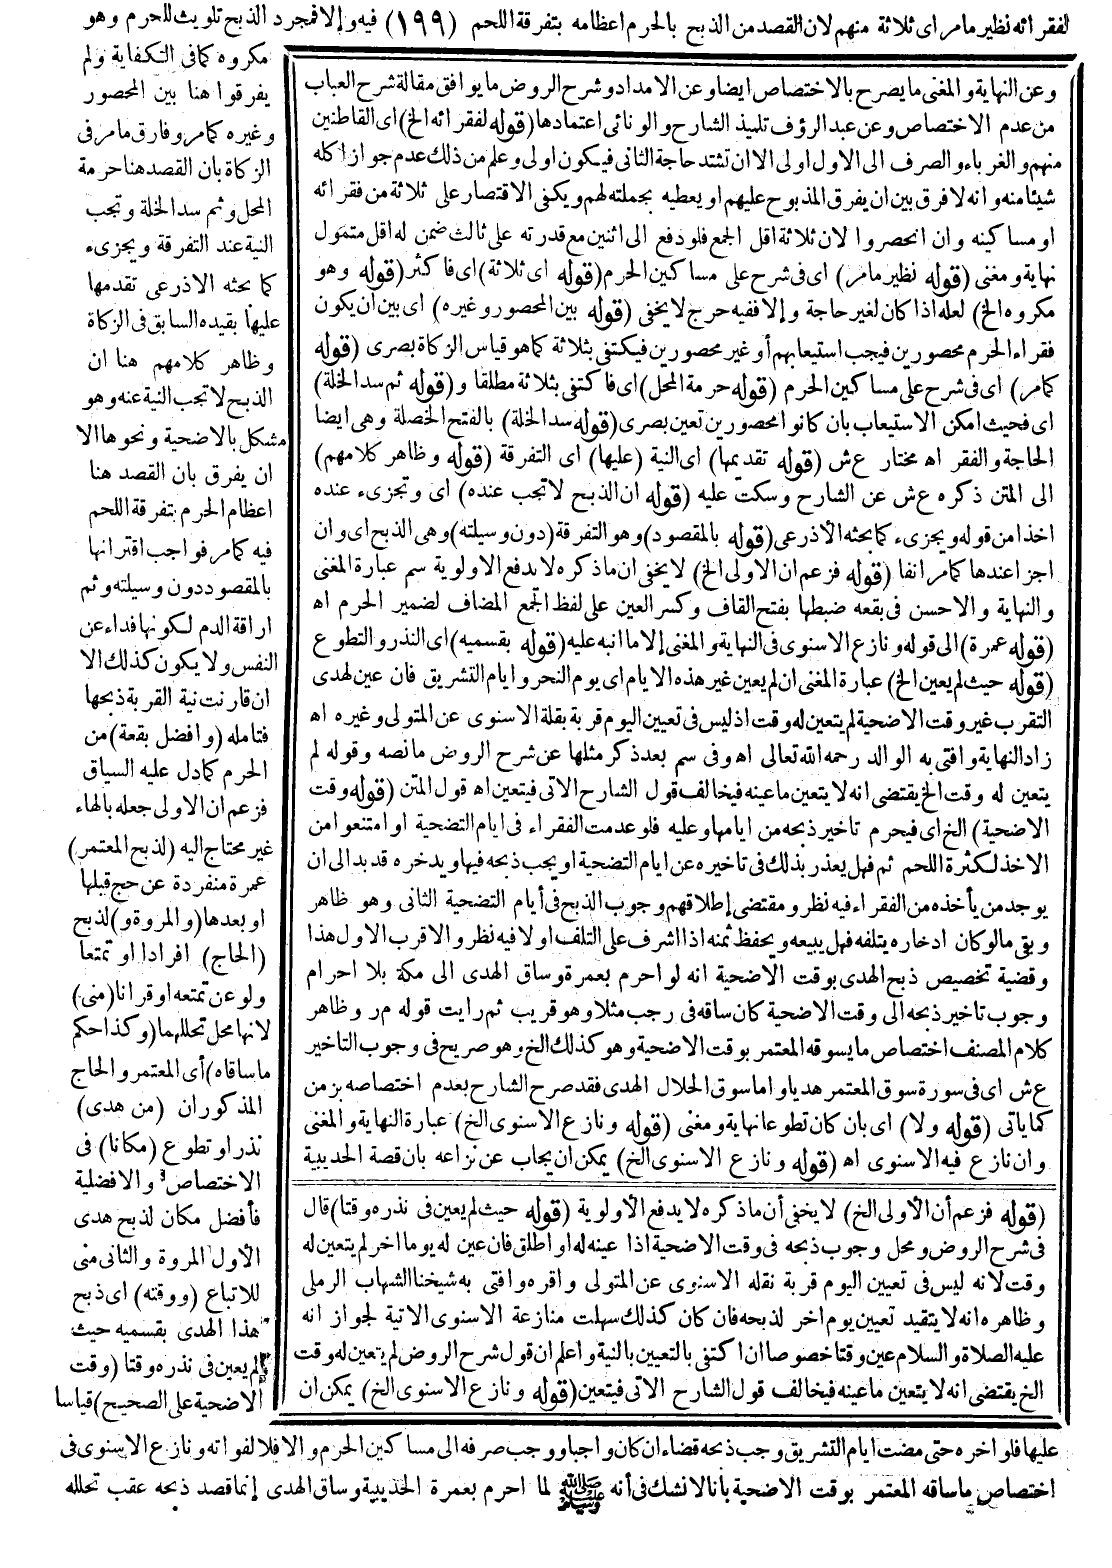 لفقرائه نظير مامر اى ثلاثة منهم لان القصد من الذبح بالحرم اعظامه بتفرقة اللحم (١٩٩) فيه والافمجرد الذبح تلويث للحرم وهو
مكروه كمافى الكفاية ولم
يفرقوا هنا بين المحصور
وغيره كمامر وفارق مامر فى
الزكاة بان القصد هنا حرمة
المحل وثم سد الخلة وتجب
النية عند التفرقة ويجزىء
كما بحثه الاذرعى تقدمها
عليها بقيده السابق فى الزكاة
وظاهر كلامهم هنا ان
الذبح لا تجب النية عنده وهو
مشكل بالاضحية ونحوها الا
ان يفرق بان القصد هنا
اعظام الحرم بتفرقة اللحم
فيه كمامر فواجب اقترانها
بالمقصود دون وسيلته وثم
اراقة الدم لكونها فداء عن
النفس ولا يكون كذلك الا
ان قارنت نية القربة ذبحها
فتامله (وافضل بقعة) من
الحرم كمادل عليه السياق
فزعم ان الاولى جعله بالهاء
غير محتاج اليه (لذبح المعتمر)
عمرة منفردة عن حج قبلها
او بعدها (والمروة و) لذبح
(الحاج) افرادا او تمتعا
ولو عن تمتعه او قرانا (منى)
لانها محل تحللهما (وكذا حكم
ماساقاه) أى المعتمر والحاج
المذكوران (من هدى)
نذر او تطوع (مكانا) فى
الاختصاص والافضلية
فأفضل مكان لذبح هدى
الأول المروة والثانى منى
للاتباع (ووقته) اى ذبح
هذا الهدى بقسميه حيث
لم يعين فى نذره وقتا (وقت
الاضحية على الصحيح) قياسا
عليها فلو اخره حتى مضت ايام التشريق وجب ذبحه قضاء ان كان واجبا ووجب صرفه الى مساكين الحرم والافلا لفواته ونازع الاسنوى فى
اختصاص ماساقه المعتمر بوقت الاضحية بأنا لانشك فى أنه صلى الله عليه وسلم لما احرم بعمرة الحديبية وساق الهدى إنما قصد ذبحه عقب تحلله
وعن النهاية والمغنى ما يصرح بالاختصاص ايضا وعن الامداد وشرح الروض ما يوافق مقالة شرح العباب
من عدم الاختصاص وعن عبد الرؤف تلميذ الشارح والونائى اعتمادها (قوله لفقرائه الخ) اى القاطنين
منهم والغرباء والصرف الى الاول اولى الا ان تشتد حاجة الثانى فيكون اولى وعلم من ذلك عدم جواز اكله
شيئا منه وانه لا فرق بين ان يفرق المذبوح عليهم او يعطيه بجملته لهم ويكفى الاقتصار على ثلاثة من فقرائه
او مساكينه وان انحصروا لان ثلاثة اقل الجمع فلو دفع الى اثنين مع قدرته على ثالث ضمن له اقل متمول
نهاية ومغنى (قوله نظير مامر) اى فى شرح على مساكين الحرم (قوله اى ثلاثة) اى فاكثر (قوله وهو
مكروه الخ) لعله اذا كان لغير حاجة والاففيه حرج لا يخفى (قوله بين المحصور وغيره) اى بين أن يكون
فقراء الحرم محصورين فيجب استيعابهم أو غير محصورين فيكتفى بثلاثة كما هو قياس الزكاة بصرى (قوله
كمامر) اى فى شرح على مساكين الحرم (قوله حرمة المحل) اى فاكتفى بثلاثة مطلقا و (قوله ثم سد الخلة)
اى فحيث امكن الاستيعاب بان كانوا محصورين تعين بصرى (قوله سد الخلة) بالفتح الخصلة وهى ايضا
الحاجة والفقر اه مختار ع ش (قوله تقديمها) اى النية (عليها) اى التفرقة (قوله وظاهر كلامهم)
الى المتن ذكره ع ش عن الشارح وسكت عليه (قوله ان الذبح لا تجب عنده) اى وتجزىء عنده
اخذا من قوله ويجزىء كما بحثه الأذرعى (قوله بالمقصود) وهو التفرقة (دون وسيلته) وهى الذبح اى وان
اجزا عندها كمامر انفا (قوله فزعم ان الاولى الخ) لا يخفى ان ماذكره لا يدفع الاولوية سم عبارة المغنى
والنهاية والاحسن فى بقعه ضبطها بفتح القاف وكسر العين على لفظ الجمع المضاف لضمير الحرم اه
(قوله عمرة) الى قوله ونازع الاسنوى فى النهاية والمغنى إلا ما انبه عليه (قوله بقسميه) اى النذر والتطوع
(قوله حيث لم يعين الخ) عبارة المغنى ان لم يعين غير هذه الايام اى يوم النحر وايام التشريق فان عين لهدى
التقرب غير وقت الاضحية لم يتعين له وقت اذ ليس فى تعيين اليوم قربة نقله الاسنوى عن المتولى وغيره اه
زاد النهاية وافتى به الوالد رحمه الله تعالى اه وفى سم بعد ذكر مثلها عن شرح الروض مانصه وقوله لم
يتعين له وقت الخ يقتضى انه لا يتعين ماعينه فيخالف قول الشارح الاتى فيتعين اه قول المتن (قوله وقت
الاضحية) الخ اى فيحرم تاخير ذبحه من ايامها وعليه فلو عدمت الفقراء فى ايام التضحية او امتنعوا من
الاخذ لكثرة اللحم ثم فهل يعذر بذلك فى تاخيره عن ايام التضحية او يجب ذبحه فيها ويدخره قديدا الى ان
يوجد من يأخذه من الفقراء فيه نظر ومقتضى إطلاقهم وجوب الذبح فى أيام التضحية الثانى وهو ظاهر
وبقى مالو كان ادخاره يتلفه فهل يبيعه ويحفظ ثمنه اذا اشرف على التلف اولا فيه نظر والاقرب الاول هذا
وقضية تخصيص ذبح الهدى بوقت الاضحية انه لو احرم بعمرة وساق الهدى الى مكة بلا احرام
وجوب تاخير ذبحه الى وقت الاضحية كان ساقه فى رجب مثلا وهو قريب ثم رايت قوله م ر وظاهر
كلام المصنف اختصاص ما يسوقه المعتمر بوقت الاضحية وهو كذلك الخ وهو صريح فى وجوب التاخير
ع ش اى فى سورة سوق المعتمر هديا واما سوق الحلال الهدى فقد صرح الشارح بعدم اختصاصه بزمن
كماياتى (قوله ولا) اى بان كان تطوعا نهاية ومغنى (قوله ونازع الاسنوى الخ) عبارة النهاية والمغنى
وان نازع فيه الاسنوى اه (قوله ونازع الاسنوى الخ) يمكن ان يجاب عن نزاعه بان قصة الحديبية
(قوله فزعم أن الأولى الخ) لا يخفى أن ماذكره لا يدفع الأولوية (قوله حيث لم يعين فى نذره وقتا) قال
فى شرح الروض ومحل وجوب ذبحه فى وقت الاضحية اذا عينه له او اطلق فان عين له يوما اخر لم يتعين له
وقت لانه ليس فى تعيين اليوم قربة نقله الاسنوى عن المتولى واقره وافتى به شيخنا الشهاب الرملى
وظاهره انه لا يتقيد تعيين يوم اخر لذبحه فان كان كذلك سهلت منازعة الاسنوى الاتية لجواز انه
عليه الصلاة والسلام عين وقتا خصوصا ان اكتفى بالتعيين بالنية واعلم ان قول شرح الروض لم يتعين له وقت
الخ يقتضى انه لا يتعين ماعينه فيخالف قول الشارح الاتى فيتعين (قوله ونازع الاسنوى الخ) يمكن ان